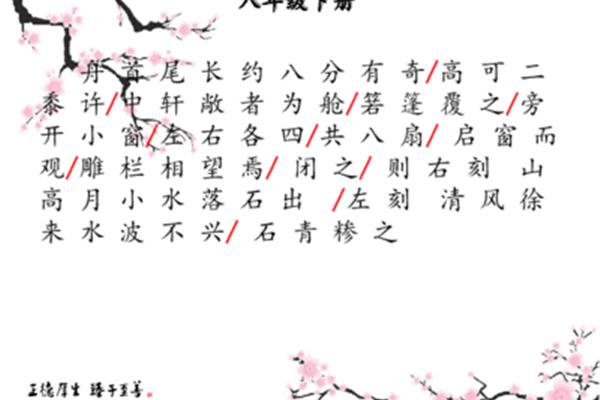 八年级下册
舟首尾长约八分有奇/高可二
黍许/中轩敞者为舱/箬篷覆之/旁
开小窗/左右各四/共八扇/启窗而
观/雕栏相望焉/闭之/则右刻山
高月小水落石出/左刻清风徐
来水波不兴/石青糁之
正德厚生 臻于至善